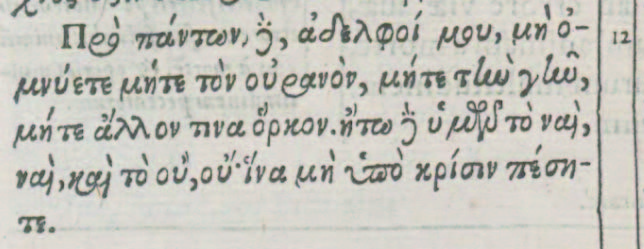 Πρὸ πάντων δὲ, ἀδελφοί μου, μὴ ὀ- 12
μνύετε μήτε τὸν οὐρανὸν, μήτε τὴν γῆν,
μήτε ἄλλον τινα ὅρκον. ἤτω δὲ ὑμῶν τὸ ναὶ,
ναὶ, καὶ τὸ οὔ, οὔ· ἵνα μὴ ὑπὸ κρίσιν πέση-
τε.